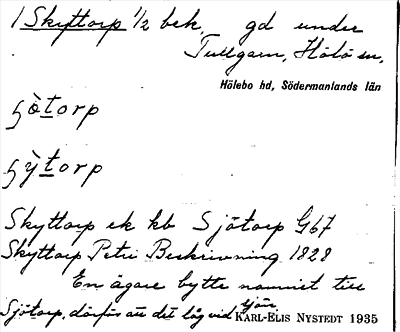 1 Skyttorp 1/2 bek. gd under
Tullgarn, Hölö sn,
Hölebo hd, Södermanlands län
ʃò̀torp
ʃỳtorp
Skyttorp ek kb Sjötorp G67
Skyttorp Petri Beskrivning 1828
En ägare bytte namnet till
Sjötorp, därför att det låg vid sjön
KARL-ELIS NYSTEDT 1935